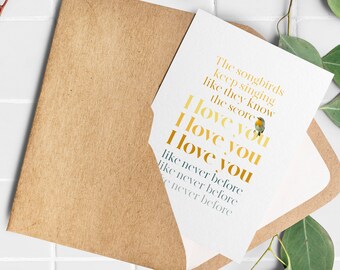 The songbirds
keep singing
like they know
the score
I love you
I love you
I love you
like never before
like never before
like never before